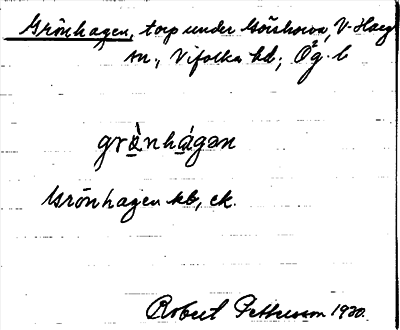 Grönhagen, torp under Göishorva, V. Harg
sn., Vifolka hd; Ög. l.
grö̀nhágən
Grönhagen kb, ek.
Robert Pettersson 1920.